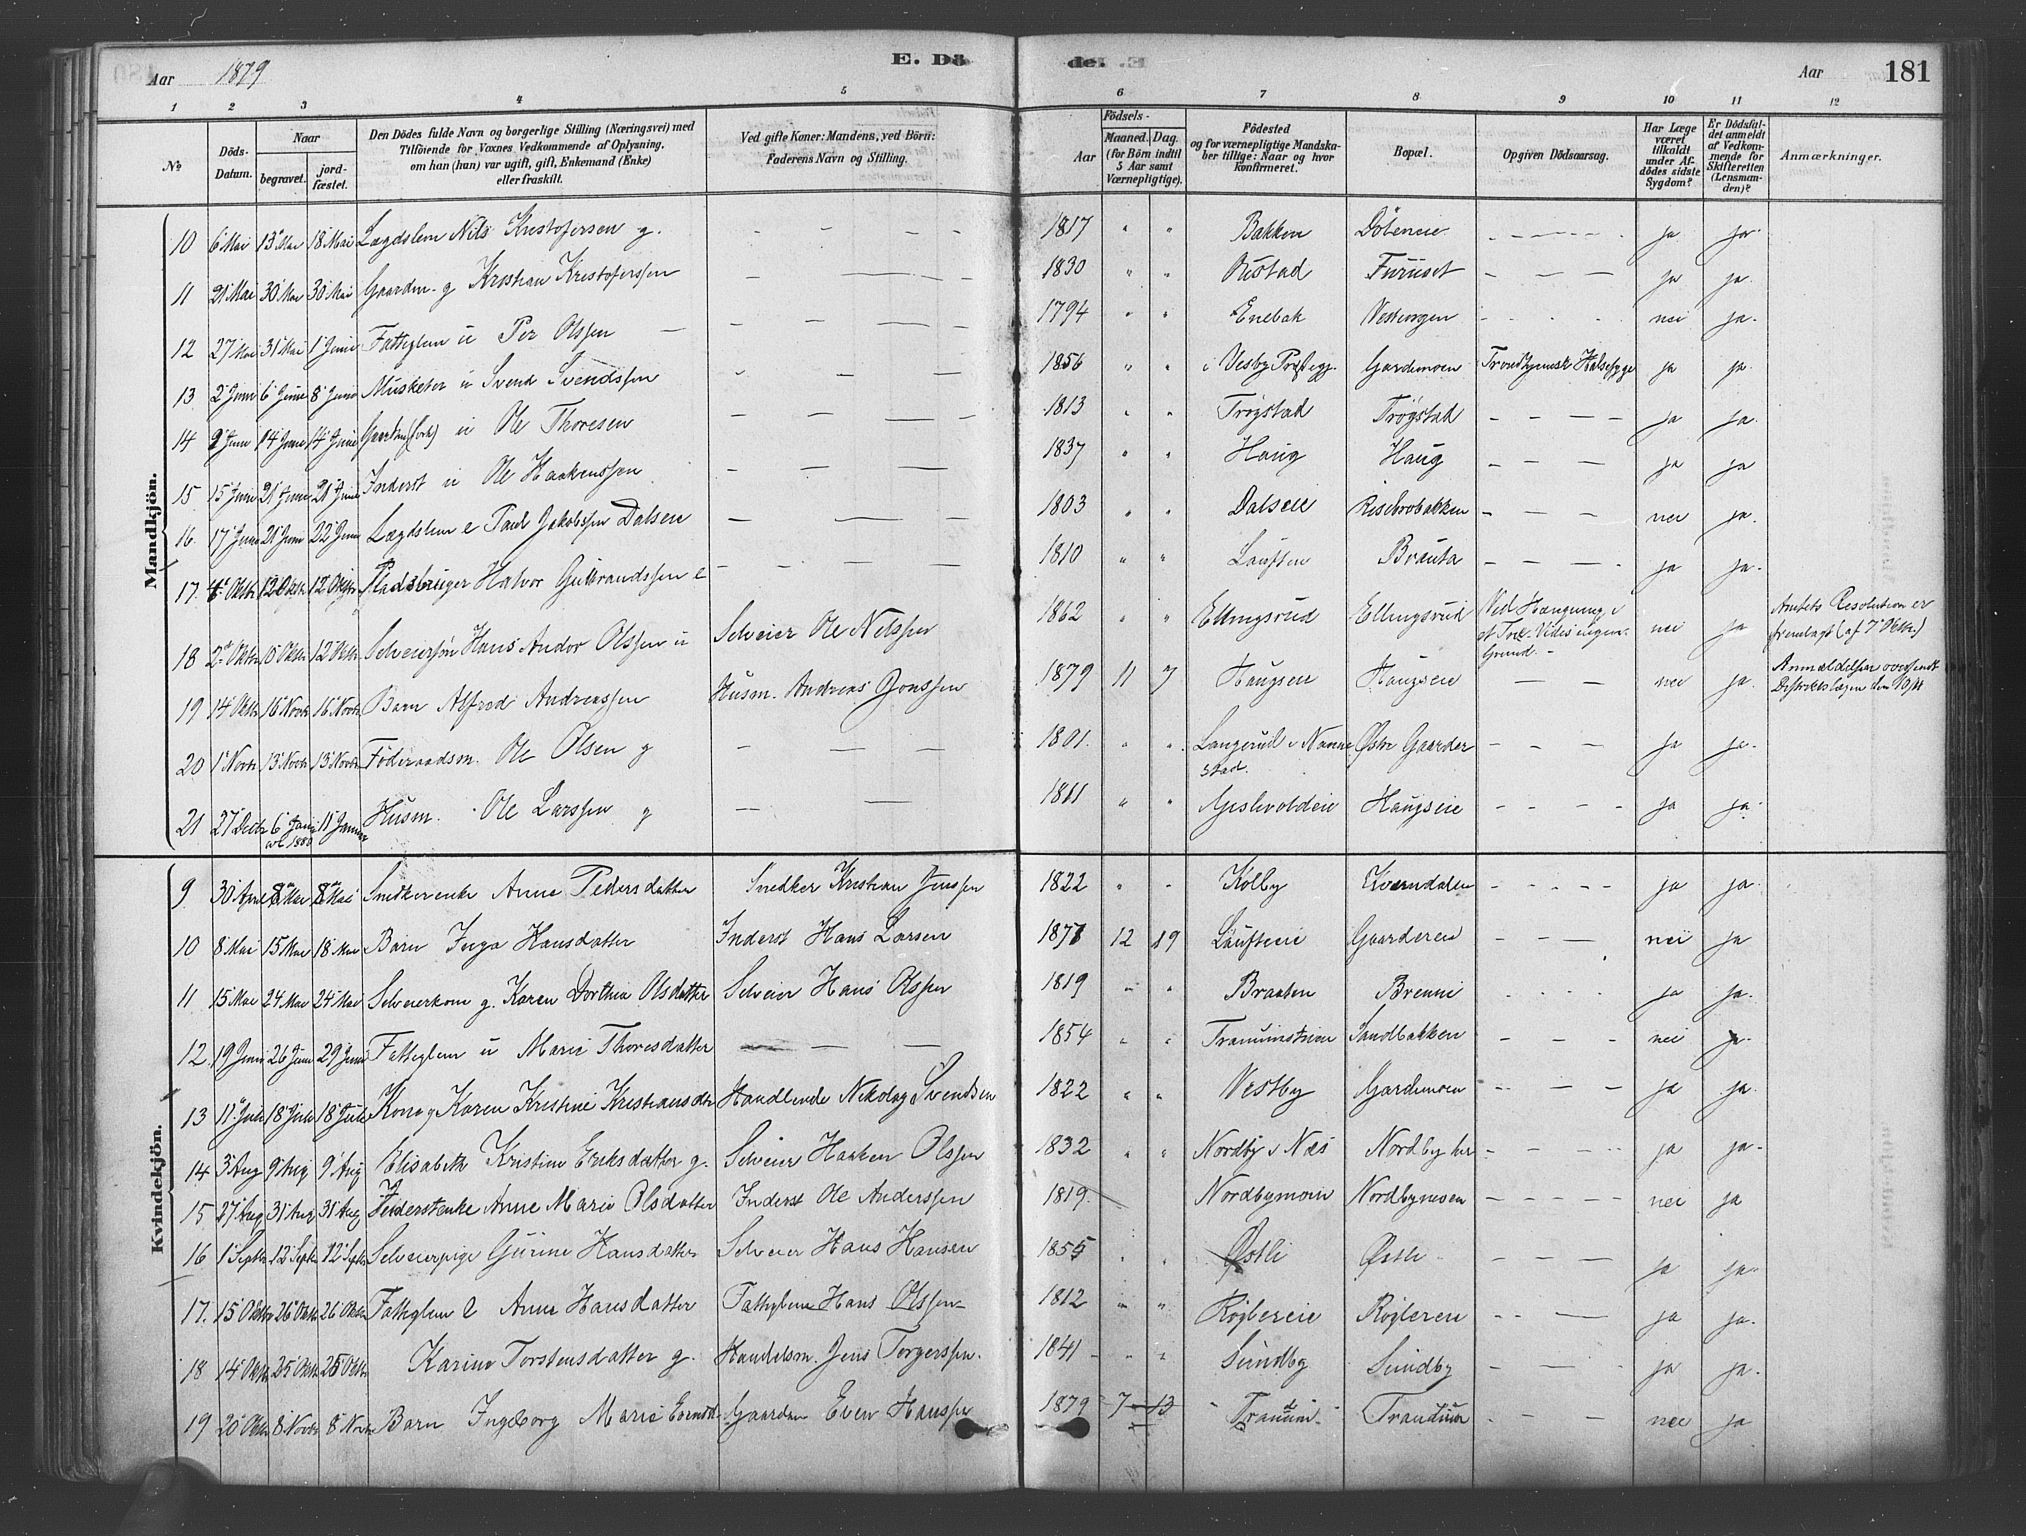 Aar 1879 E. Dö
de. Aar 181
1 2 3 4 5 6 7 8 9 10 11 12
No. Döds-Datum. Naar begravet. jordfæstet. Den Dödes fulde Navn og borgerlige Stilling (Næringsvei) med Tilföiende for Voxnes Vedkommende af Oplysning, om han (hun) var ugift, gift, Enkemand (Enke) eller fraskilt. Ved gifte Koner: Mandens, ved Börn: Faderens Navn og Stilling. Födsels- Aar Maaned. Dag. (for Börn indtil 5 Aar samt Værnepligtige). Födested og for værnepligtige Mandskaber tillige: Naar og hvor konfirmeret. Bopæl. Opgiven Dödsaarsag. Har Læge været tilkaldt under Afdödes sidste Sygdom? Er Dödsfaldet anmeldt af Vedkommende for Skifteretten (Lensmanden)? Anmærkninger.
Mandkjön.
10 6 Mai 13 Mai 18 Mai Lægdslem Nils Kristofersen g. 1817 " " Bakken Döleneie ja ja
11 21 Mai 30 Mai 30 Mai Gaardm. g Kristian Kristoferssen 1830 " " Rustad Furuset ja ja.
12 27 Mai 31 Mai 1 Juni Fattiglem u Per Olssen 1794 " " Enebak nei ja.
13 2 Juni 6 Juni 8 Juni Musketer u Svend Svendssen 1856 " " i Vesby Præstegj. Gardemoen Trondhjemsk Halssyge ja ja.
14 9 Juni 14 Juni 14 Juni u Ole Thoresen 1813 " " Trøgstad Trøgstad ja ja.
15 15 Juni 21 Juni 21 Juni Inderst u Ole Haakenssen 1837 " " Haug Haug ja ja
16. 17 Juni 21 Juni 22 Juni Lægdslem e Paul Jakobssen Dalseie 1803 " " Dalseie Risebrobakken nei ja.
17. 4 Oktbr 12 Oktbr 12 Oktbr Pladsbruger Halvor Gulbrandssen e 1810 " " Løuften Brauta ja ja.
18 2 Oktbr 10 Oktbr 12 Oktbr Selveiersøn Hans Andor Olssen u Selveier Ole Nilssen 1862 " " Ellingsrud Ellingsrud Ved Hængning i et Træ. Vides ingen Grund. nei ja Amtets Resolution er fremlagt (af 7 Oktbr.)
19 14 Oktbr 16 Novbr 16 Novbr Barn Alfred Andreassen Husm. Andreas Jonssen 1879 11 7 Haugseie Haugseie nei ja. Anmeldelsen oversendt Distriktslægen den 10/11
20 1 Novbr 13 Novbr 13 Novbr Føderaadsm. Ole Olsen g 1801. " " Langerud i Nannestad. Østre Gaarder ja ja.
21 27 Decbr 6 Januar 1880 11 Januar Husm. Ole Larssen g 1811 " " Gislevoldeie Haugseie ja ja.
Kvindekjön.
9 30 April 8 Mai 8 Mai Snedkerenke Anne Pedersdatter Snedker Kristian Jenssen 1822 " " Kølby Kverndalen ja ja.
10 8 Mai 15 Mai 18 Mai Barn Inga Hansdatter Inderst Hans Larsen 1878 12 19 Løufteie Gaardereie nei ja
11 15 Mai 24 Mai 24 Mai Selveierkone g. Karen Dorthea Olsdatter Selveier Hans Olssen 1819 " " Braaten Brenni ja ja.
12 19 Juni 26 Juni 29 Juni Fattiglem u Marie Thoresdatter 1854 " " Sandbakken nei ja.
13 11 Juli 18 Juli 18 Juli Kone g Karen Kristine Kristiansdtr Handlende Nikolay Svendsen 1822 " " Vestby Gardemoen ja ja.
14 3 Aug 9 Aug 9 Aug Elisabeth Kristine Eriksdatter g. Selveier Haaken Olssen 1832 " " Nordby i Næs Nordby her ja ja.
15 27 Aug 31 Aug 31 Aug Inderstenke Anne Marie Olsdatter Inderst Ole Anderssen 1819. Nordbymoeie Nordbymoen nei ja
16 1 Septbr 12 Septbr 12 Septbr Selveierpige Gurine Hansdatter Selveier Hans Hansen 1855 " " Østli Østli ja ja.
17. 15 Oktbr 26 Oktbr 26 Oktbr Fattiglem e Anne Hansdatter Fattiglem Hans Olssen 1812 " " Røglereie Røglereie ja ja.
18 14 Oktbr 25 Oktbr 25 Oktbr Karine Torstensdatter g. Handelsm. Jens Torgerssen. 1841 " " Sundby Sundby ja ja.
19 20 Oktbr 8 Novbr 8 Novbr Barn Ingeborg Marie Evensd. Gaardm Even Hanssen 1879 7 13 Trandum Trandum nei ja